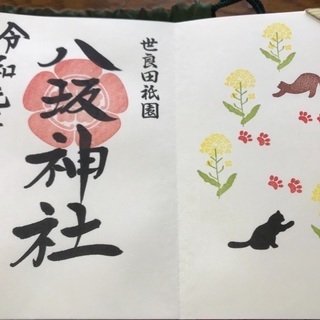 世良田祇園
八坂神社
令和元